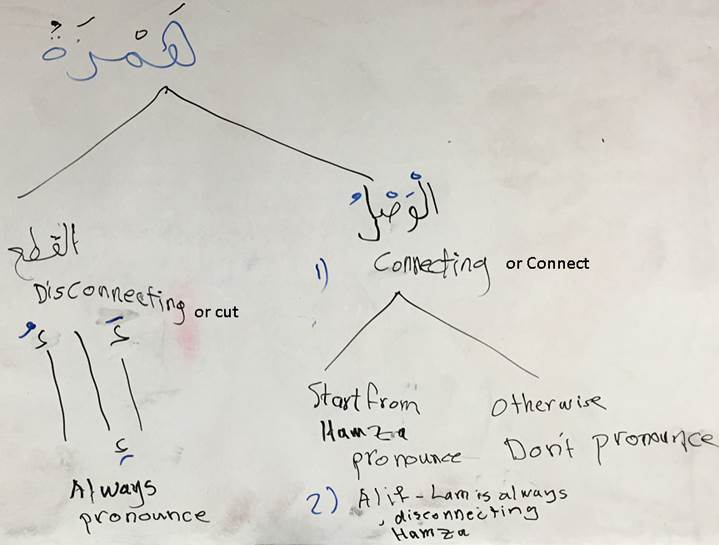 هَمْزَةٌ
القطع
Disconnecting or cut
أُ ا أَ
إِ
Always
pronounce
الْوَصْلُ
1) Connecting or Connect
Start from
Hamza
pronounce
Otherwise
Don't pronounce
2) Alif - Lam is always
disconnecting
Hamza